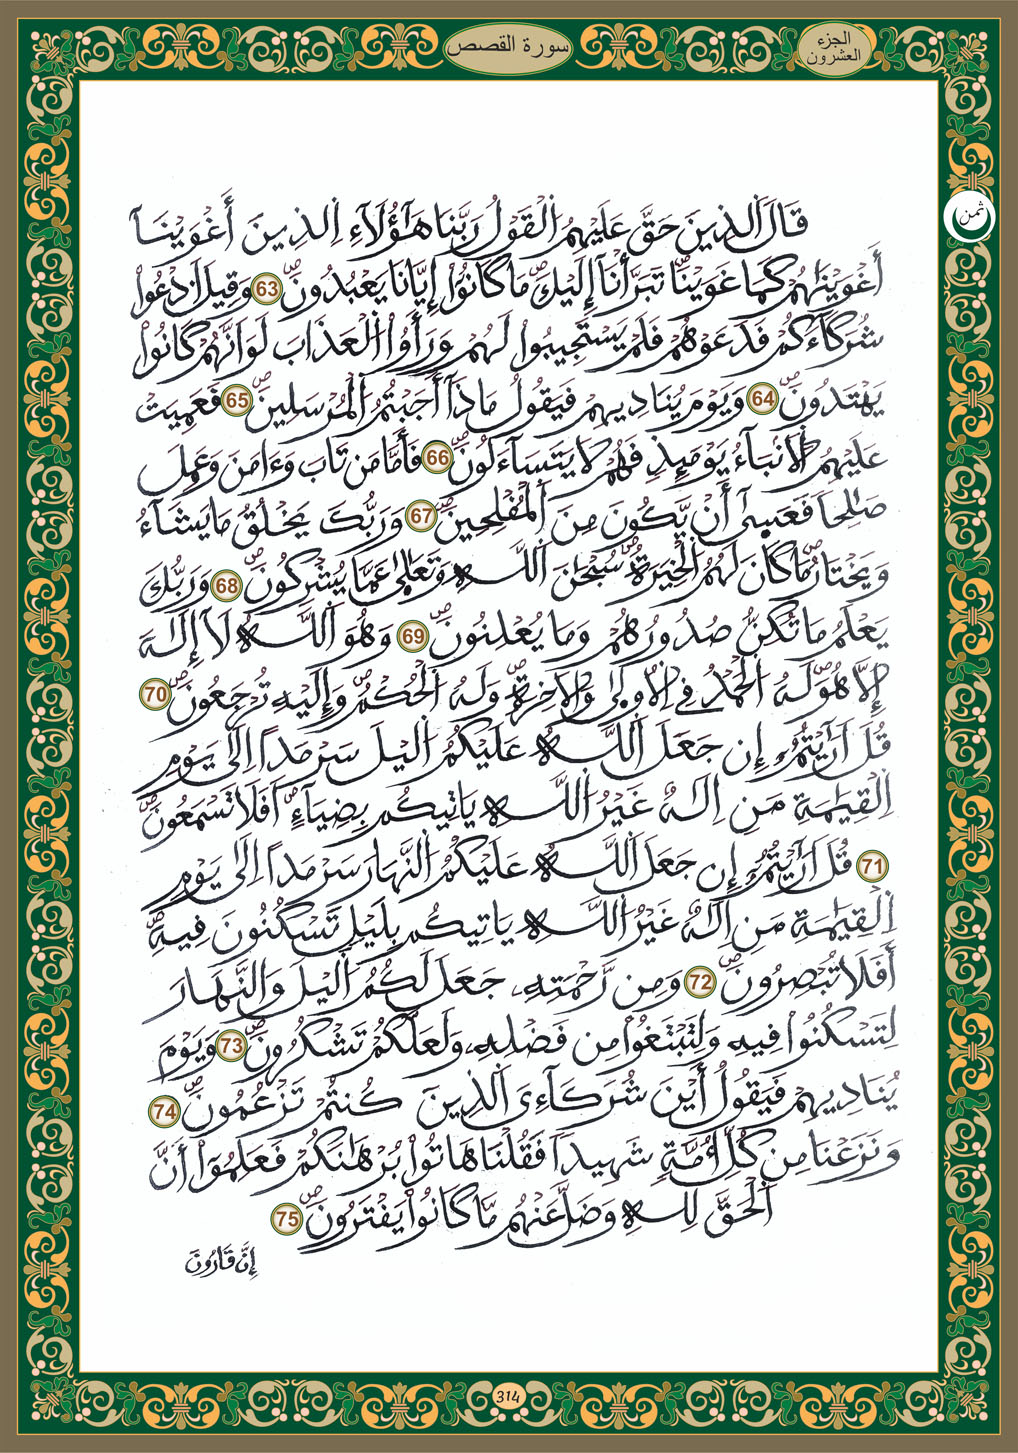 الجزء
العشرون
سورة القصص
ثمن
قَالَ اَلذِينَ حَقَّ عَلَيْهِمُ اُلْقَوْلُ رَبَّنَا هَٰٓؤُلَآءِ اِلذِينَ أَغْوَيْنَآ
أَغْوَيْنَٰهُمْ كَمَا غَوَيْنَاۖ تَبَرَّأْنَآ إِلَيْكَۖ مَا كَانُوٓاْ إِيَّانَا يَعْبُدُونَۖ 63 وَقِيلَ اَدْعُواْ
شُرَكَآءَكُمْ فَدَعَوْهُمْ فَلَمْ يَسْتَجِيبُواْ لَهُمْ وَرَأَوُاْ اُلْعَذَابَ لَوَ اَنَّهُمْ كَانُواْ
يَهْتَدُونَۖ 64 وَيَوْمَ يُنَادِيهِمْ فَيَقُولُ مَاذَآ أَجَبْتُمُ اُلْمُرْسَلِينَۖ 65 فَعَمِيَتْ
عَلَيْهِمُ اُلَانۢبَآءُ يَوْمَئِذٖ فَهُمْ لَا يَتَسَآءَلُونَۖ 66 فَأَمَّا مَن تَابَ وَءَامَنَ وَعَمِلَ
صَٰلِحاٗ فَعَسَىٰٓ أَنْ يَّكُونَ مِنَ اَلْمُفْلِحِينَۖ 67 وَرَبُّكَ يَخْلُقُ مَا يَشَآءُ
وَيَخْتَارُۖ مَا كَانَ لَهُمُ اُلْخِيَرَةُۖ سُبْحَٰنَ اَللَّهِ وَتَعَٰلَىٰ عَمَّا يُشْرِكُونَۖ 68 وَرَبُّكَ
يَعْلَمُ مَا تُكِنُّ صُدُورُهُمْ وَمَا يُعْلِنُونَۖ 69 وَهُوَ اَللَّهُ لَآ إِلَٰهَ
إِلَّا هُوَۖ لَهُ اُلْحَمْدُ فِي اِلُاولَىٰ وَالَاخِرَةِۖ وَلَهُ اُلْحُكْمُ وَإِلَيْهِ تُرْجَعُونَۖ 70
قُلَ اَرَٰٓيْتُمُۥٓ إِن جَعَلَ اَللَّهُ عَلَيْكُمُ اُلَّيْلَ سَرْمَداً اِلَىٰ يَوْمِ
اِلْقِيَٰمَةِ مَنِ اِلَٰهٌ غَيْرُ اُللَّهِ يَاتِيكُم بِضِيَآءٍۖ اَفَلَا تَسْمَعُونَۖ
71 قُلَ اَرَٰٓيْتُمُۥٓ إِن جَعَلَ اَللَّهُ عَلَيْكُمُ اُلنَّهَارَ سَرْمَداً اِلَىٰ يَوْمِ
اِلْقِيَٰمَةِ مَنِ اِلَٰهٌ غَيْرُ اُللَّهِ يَاتِيكُم بِلَيْلٖ تَسْكُنُونَ فِيهِۖ
أَفَلَا تُبْصِرُونَۖ 72 وَمِن رَّحْمَتِهِۦ جَعَلَ لَكُمُ اُلَّيْلَ وَالنَّهَارَ
لِتَسْكُنُواْ فِيهِ وَلِتَبْتَغُواْ مِن فَضْلِهِۦ وَلَعَلَّكُمْ تَشْكُرُونَۖ 73 وَيَوْمَ
يُنَادِيهِمْ فَيَقُولُ أَيْنَ شُرَكَآءِيَ اَلذِينَ كُنتُمْ تَزْعُمُونَۖ 74
وَنَزَعْنَا مِن كُلِّ أُمَّةٖ شَهِيداٗ فَقُلْنَا هَاتُواْ بُرْهَٰنَكُمْ فَعَلِمُوٓاْ أَنَّ
اَلْحَقَّ لِلهِ وَضَلَّ عَنْهُم مَّا كَانُواْ يَفْتَرُونَۖ 75
إِنَّ قَٰرُونَ
314